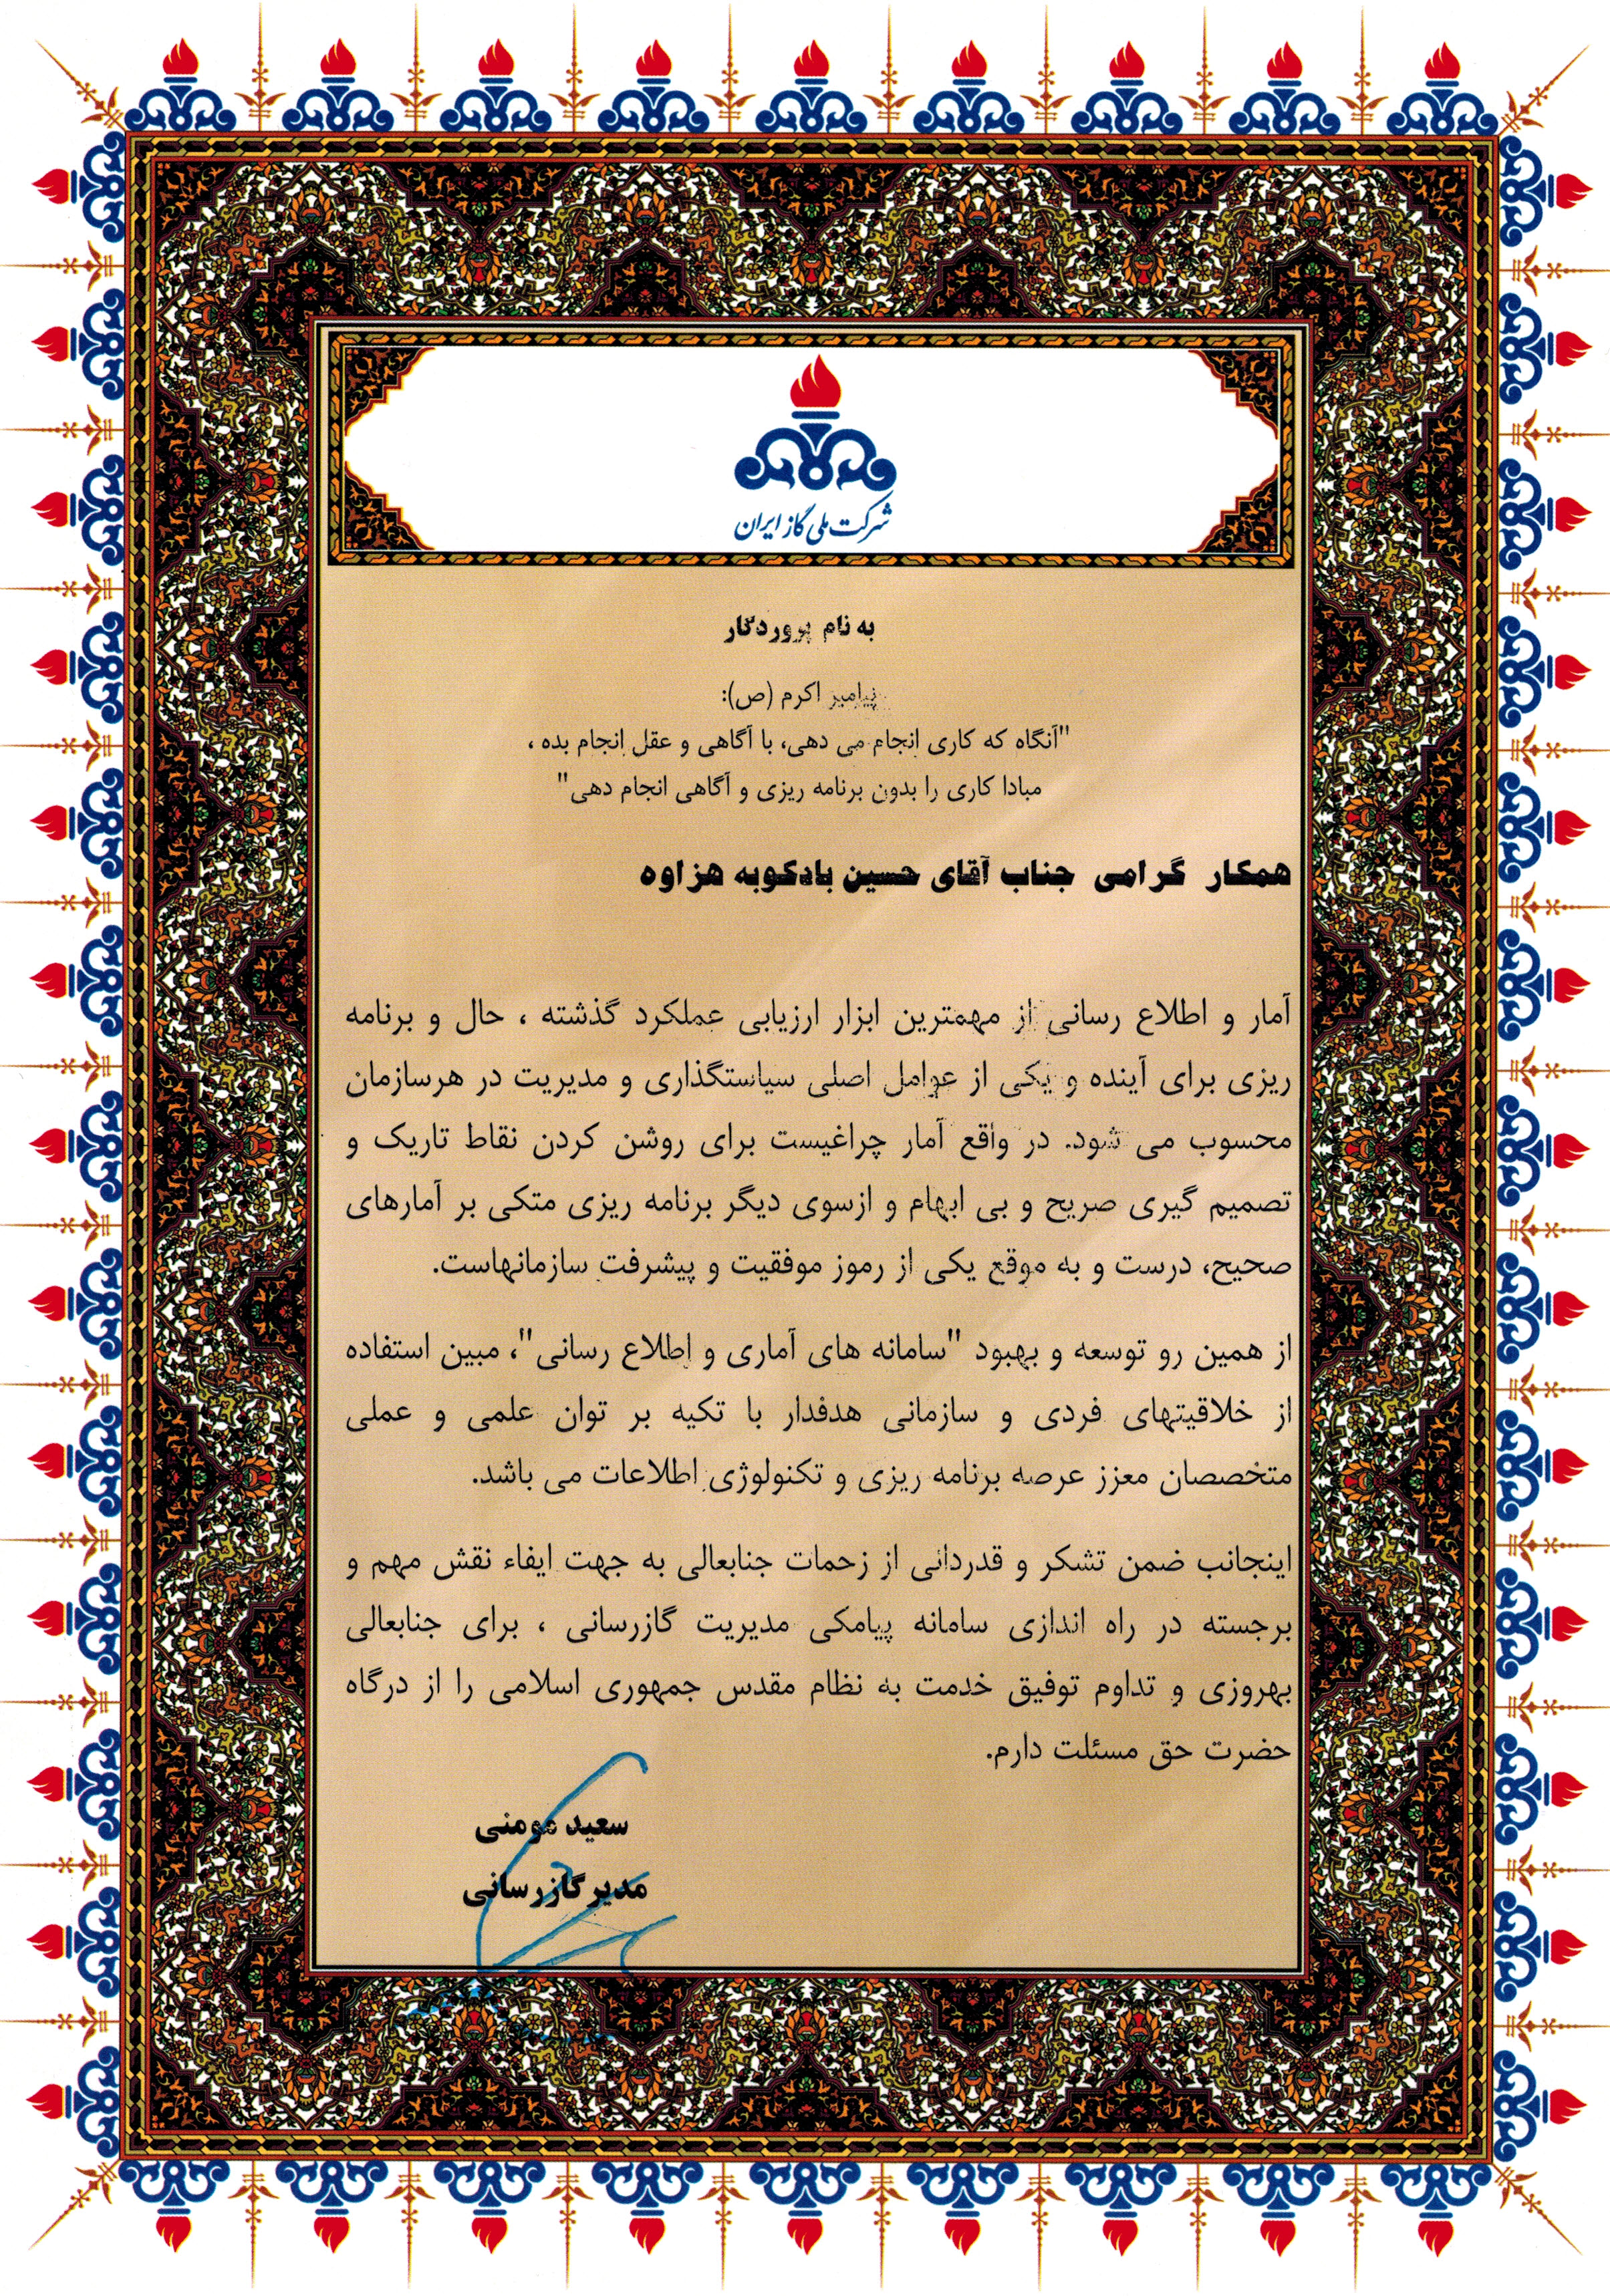 شرکت ملی گاز ایران
به نام پروردگار
پیامبر اکرم (ص):
"آنگاه که کاری انجام می دهی، با آگاهی و عقل انجام بده ،
مبادا کاری را بدون برنامه ریزی و آگاهی انجام دهی"
همکار گرامی جناب آقای حسین بادکوبه هزاوه
آمار و اطلاع رسانی از مهمترین ابزار ارزیابی عملکرد گذشته ، حال و برنامه
ریزی برای آینده و یکی از عوامل اصلی سیاستگذاری و مدیریت در هرسازمان
محسوب می شود. در واقع آمار چراغیست برای روشن کردن نقاط تاریک و
تصمیم گیری صریح و بی ابهام و ازسوی دیگر برنامه ریزی متکی بر آمارهای
صحیح، درست و به موقع یکی از رموز موفقیت و پیشرفت سازمانهاست.
از همین رو توسعه و بهبود "سامانه های آماری و اطلاع رسانی"، مبین استفاده
از خلاقیتهای فردی و سازمانی هدفدار با تکیه بر توان علمی و عملی
متخصصان معزز عرصه برنامه ریزی و تکنولوژی اطلاعات می باشد.
اینجانب ضمن تشکر و قدردانی از زحمات جنابعالی به جهت ایفاء نقش مهم و
برجسته در راه اندازی سامانه پیامکی مدیریت گازرسانی ، برای جنابعالی
بهروزی و تداوم توفیق خدمت به نظام مقدس جمهوری اسلامی را از درگاه
حضرت حق مسئلت دارم.
سعید مومنی
مدیر گازرسانی